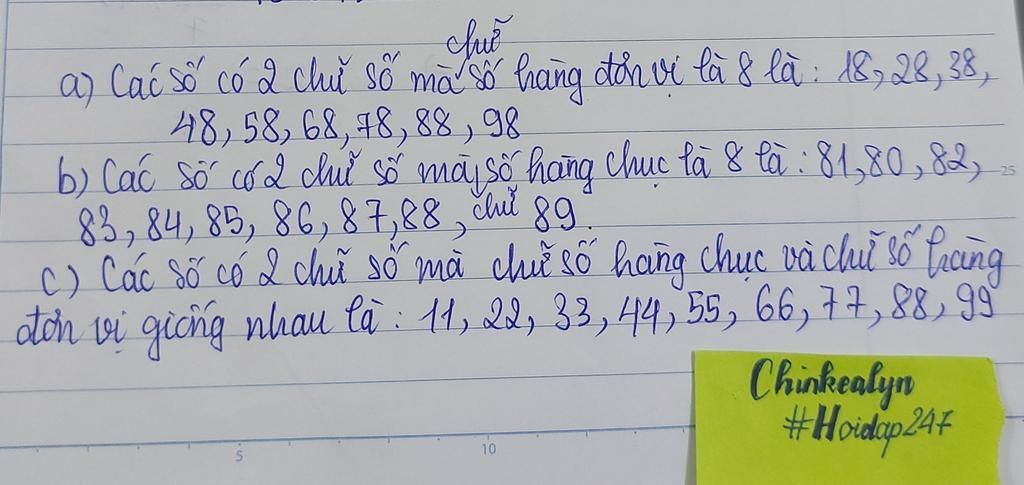 chữ
a) Các số có 2 chữ số mà số hàng đơn vị là 8 là: 18, 28, 38,
48, 58, 68, 78, 88, 98
b) Các số có 2 chữ số mà số hàng chục là 8 là: 81, 80, 82,
83, 84, 85, 86, 87, 88, chữ 89.
c) Các số có 2 chữ số mà chữ số hàng chục và chữ số hàng
đơn vị giống nhau là: 11, 22, 33, 44, 55, 66, 77, 88, 99
Chinkealyn
#Hoidap247
5 10
25